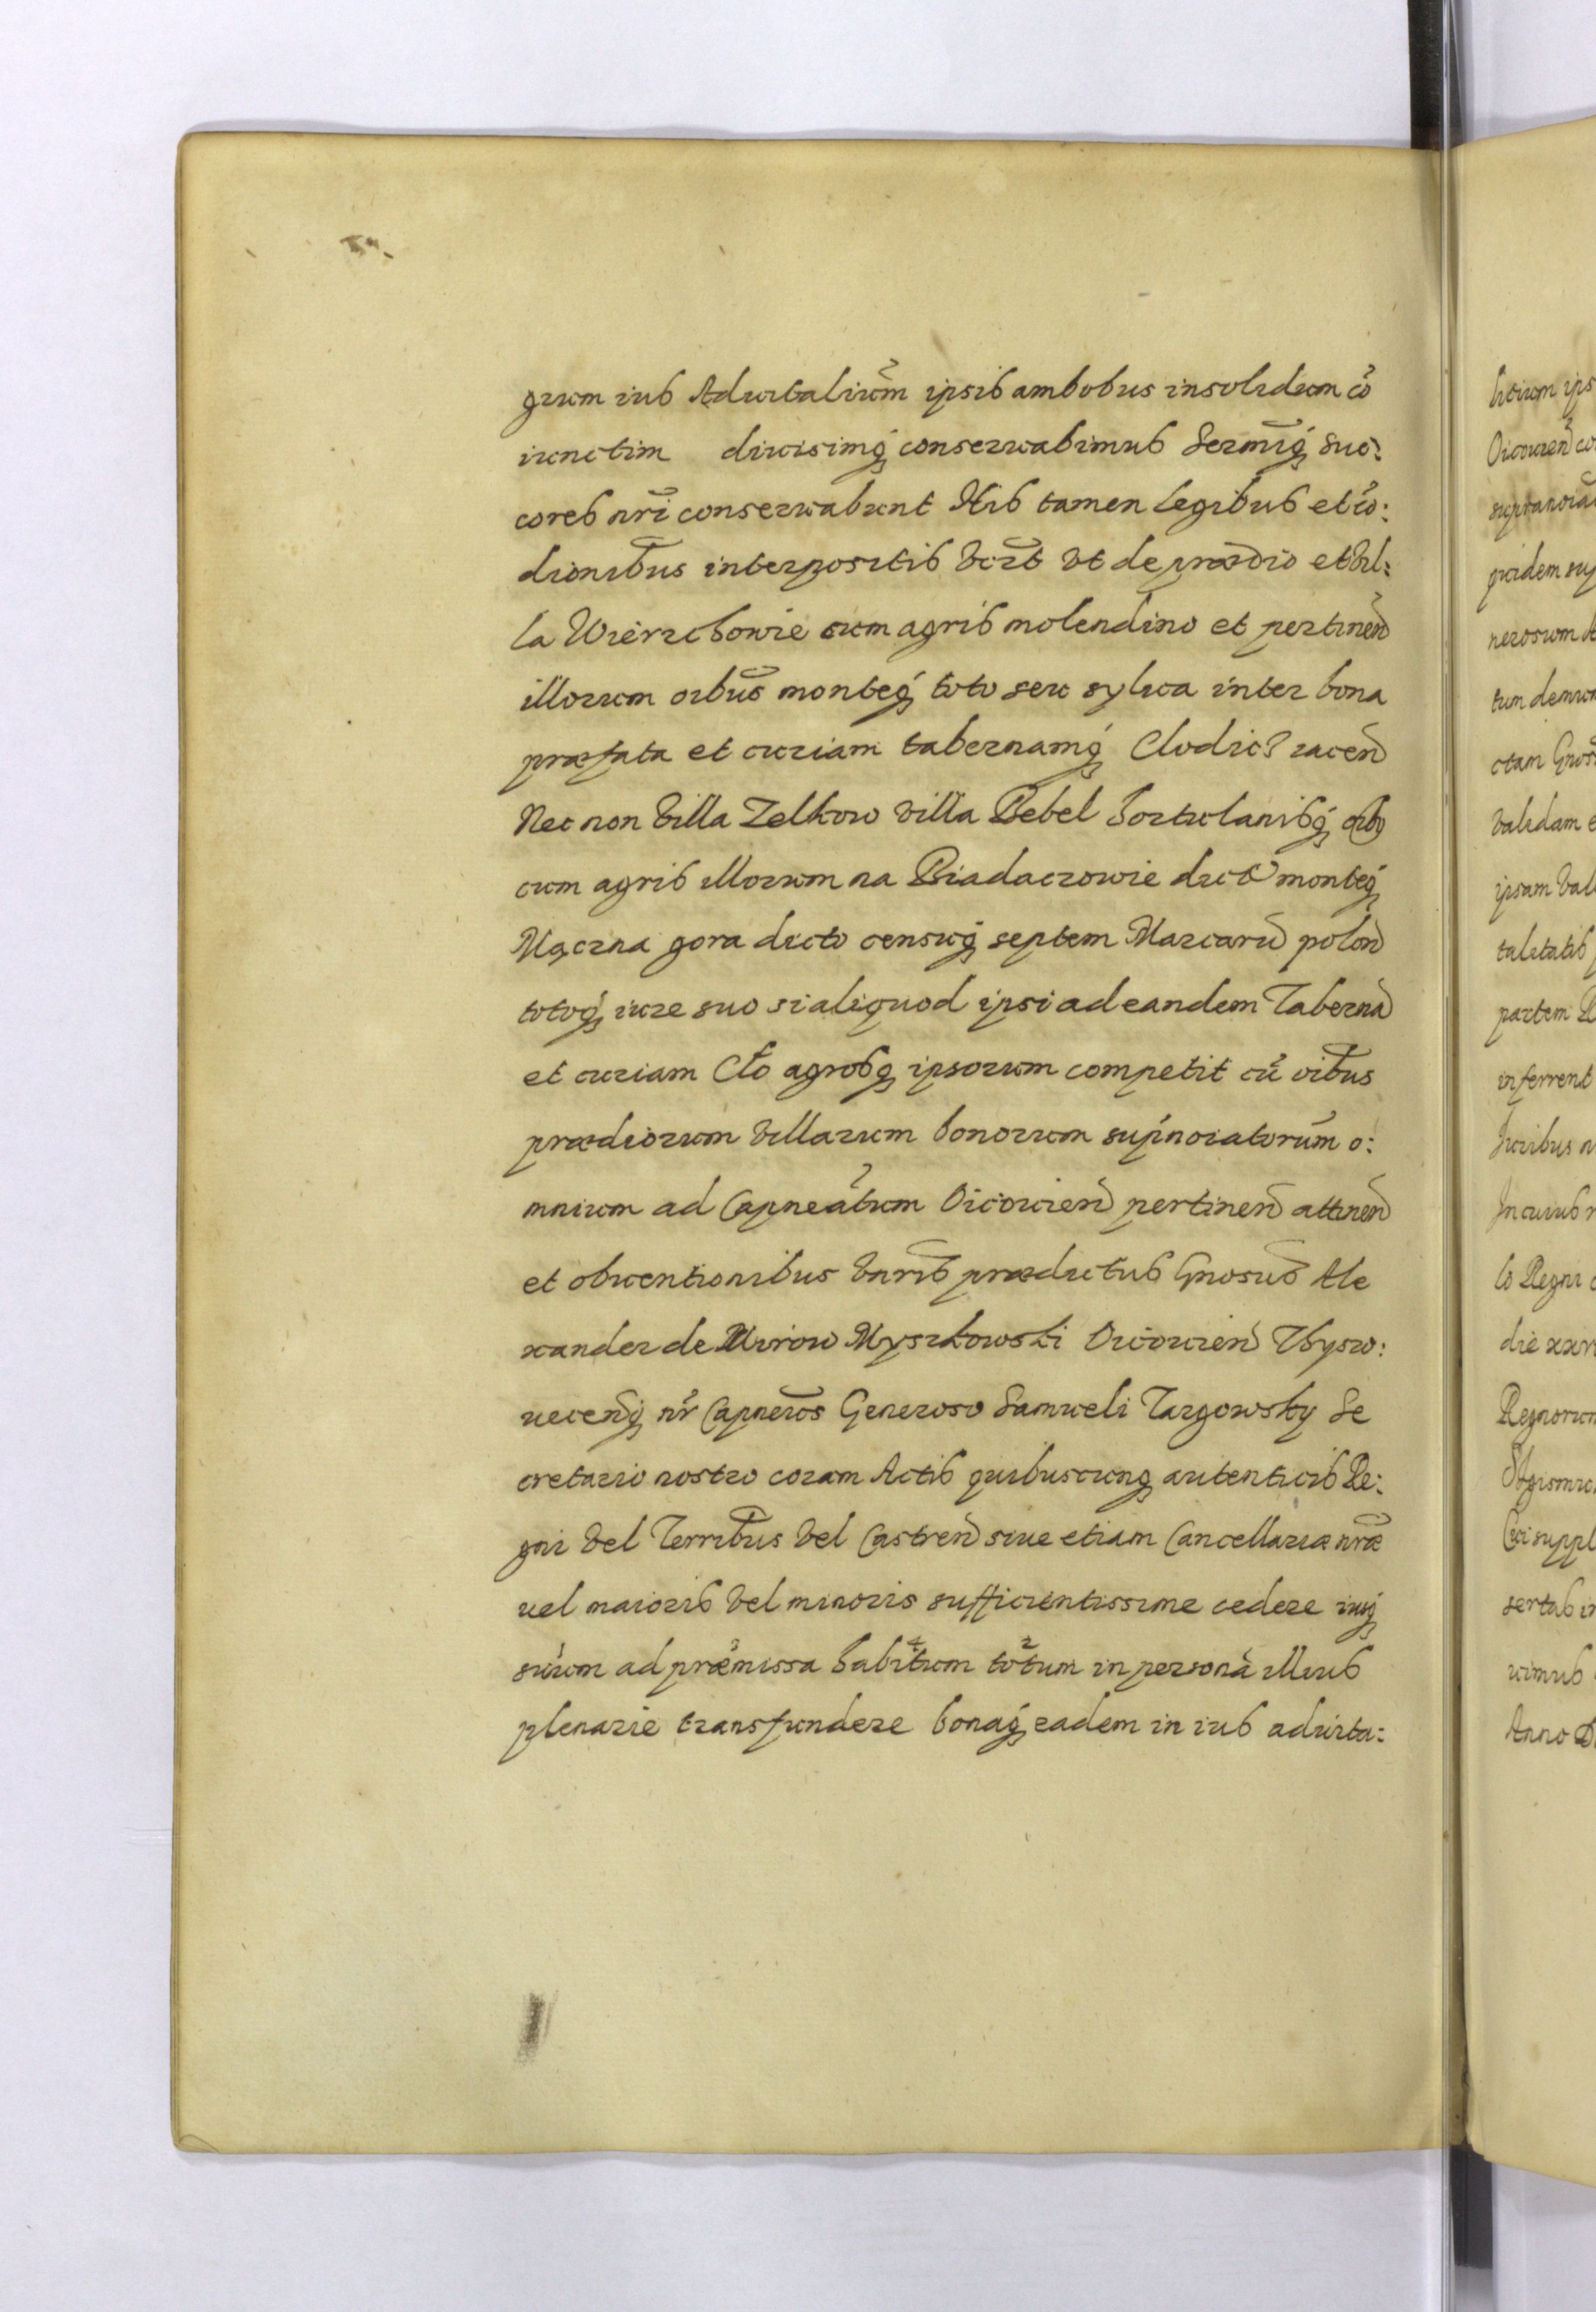 grum ius Aduitalium̃ ipsis ambobus insolidum cõ
iunctim diuisimq̃ conseruabimus Sermiq̃ suc:
cores nr̃i conseruabunt His tamen legibus et cõ:
dionibus interpositis vid̃t vt de prædio et vil:
la Wierzchowie cum agris molendino et pertinen̄
illorum oib̃us monteq̃ toto seu sylua inter bona
præfata et curiam tabernamq̃ Clodic? iacen̄
Nec non villa Zelkow villa Bebel hortulanisq̃ oib9
cum agris illorum na Biadaczowie dicto monteq̃
Mączna gora dicto censuq̃ septem Marcarū polon̄
totoq̃ iure suo si aliquod ipsi ad eandem Tabernā
et curiam Clo agrosq̃ ipsorum competit cũ oibus
prædiorum villarum bonorum sup̃noiatorum o:
mnium ad Capneatum Oicouien̄ pertinen̄ attinen̄
et obuentionibus vnr̃is prædictus Gnosus̃ Ale
xander de Mirow Myszkowski Oicouien̄ Thyszo:
uecenq̃ nr̃ Capneus̃ Generoso Samueli Targowsky Se
cretario nostro coram Actis quibuscunq̃ autenticis Re:
gni vel Terrib̃us vel Castren̄ siue etiam Cancellariæ nr̃æ
uel maioris vel minoris sufficientissime cedere iusq̃
suum ad præmissa habitum totum in personā illius
plenarie transfundere bonaq̃ eadem in ius aduita:

litium ips
Oicouien̄ co
supranoia
quidem sup
nerosum A
tum demum
ctam Gnos
validam e
ipsam val
talitatis
partem R
inferrent
Juribus n
In cuius r
lo Regni
die xxv
Regnorum
Sigismu
Cui suppl
sertas in
uimus
Anno D